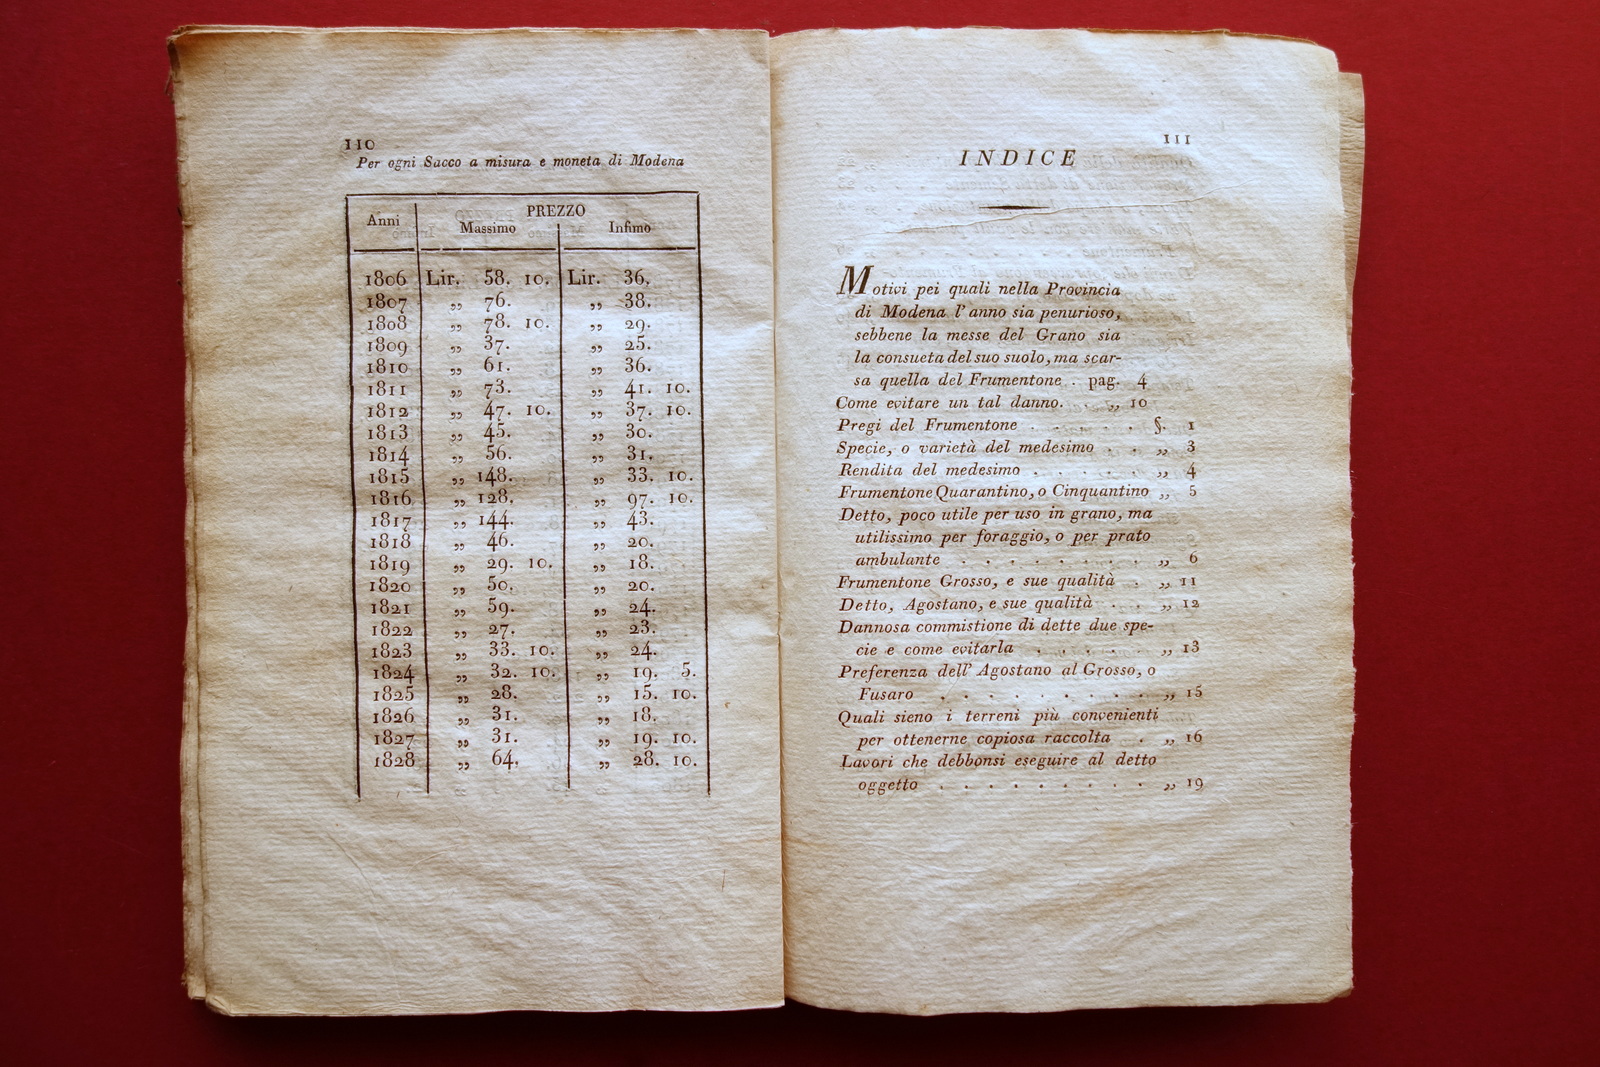 110
Per ogni Sacco a misura e moneta di Modena
Anni PREZZO
Massimo Infimo
1806 Lir. 58. 10. Lir. 36.
1807 „ 76. „ 38.
1808 „ 78. 10. „ 29.
1809 „ 37. „ 25.
1810 „ 61. „ 36.
1811 „ 73. „ 41. 10.
1812 „ 47. 10. „ 37. 10.
1813 „ 45. „ 30.
1814 „ 56. „ 31.
1815 „ 148. „ 33. 10.
1816 „ 128. „ 97. 10.
1817 „ 144. „ 43.
1818 „ 46. „ 20.
1819 „ 29. 10. „ 18.
1820 „ 50. „ 20.
1821 „ 59. „ 24.
1822 „ 27. „ 23.
1823 „ 33. 10. „ 24.
1824 „ 32. 10. „ 19. 5.
1825 „ 28. „ 15. 10.
1826 „ 31. „ 18.
1827 „ 31. „ 19. 10.
1828 „ 64. „ 28. 10.
111
INDICE
Motivi pei quali nella Provincia
di Modena l'anno sia penurioso,
sebbene la messe del Grano sia
la consueta del suo suolo, ma scar-
sa quella del Frumentone . pag. 4
Come evitare un tal danno. . „ 10
Pregi del Frumentone . . . . . §. 1
Specie, o varietà del medesimo . . „ 3
Rendita del medesimo . . . . . „ 4
Frumentone Quarantino, o Cinquantino „ 5
Detto, poco utile per uso in grano, ma
utilissimo per foraggio, o per prato
ambulante . . . . . . . . „ 6
Frumentone Grosso, e sue qualità . „ 11
Detto, Agostano, e sue qualità . . „ 12
Dannosa commistione di dette due spe-
cie e come evitarla . . . . . „ 13
Preferenza dell' Agostano al Grosso, o
Fusaro . . . . . . . . . „ 15
Quali sieno i terreni più convenienti
per ottenerne copiosa raccolta . „ 16
Lavori che debbonsi eseguire al detto
oggetto . . . . . . . . . „ 19